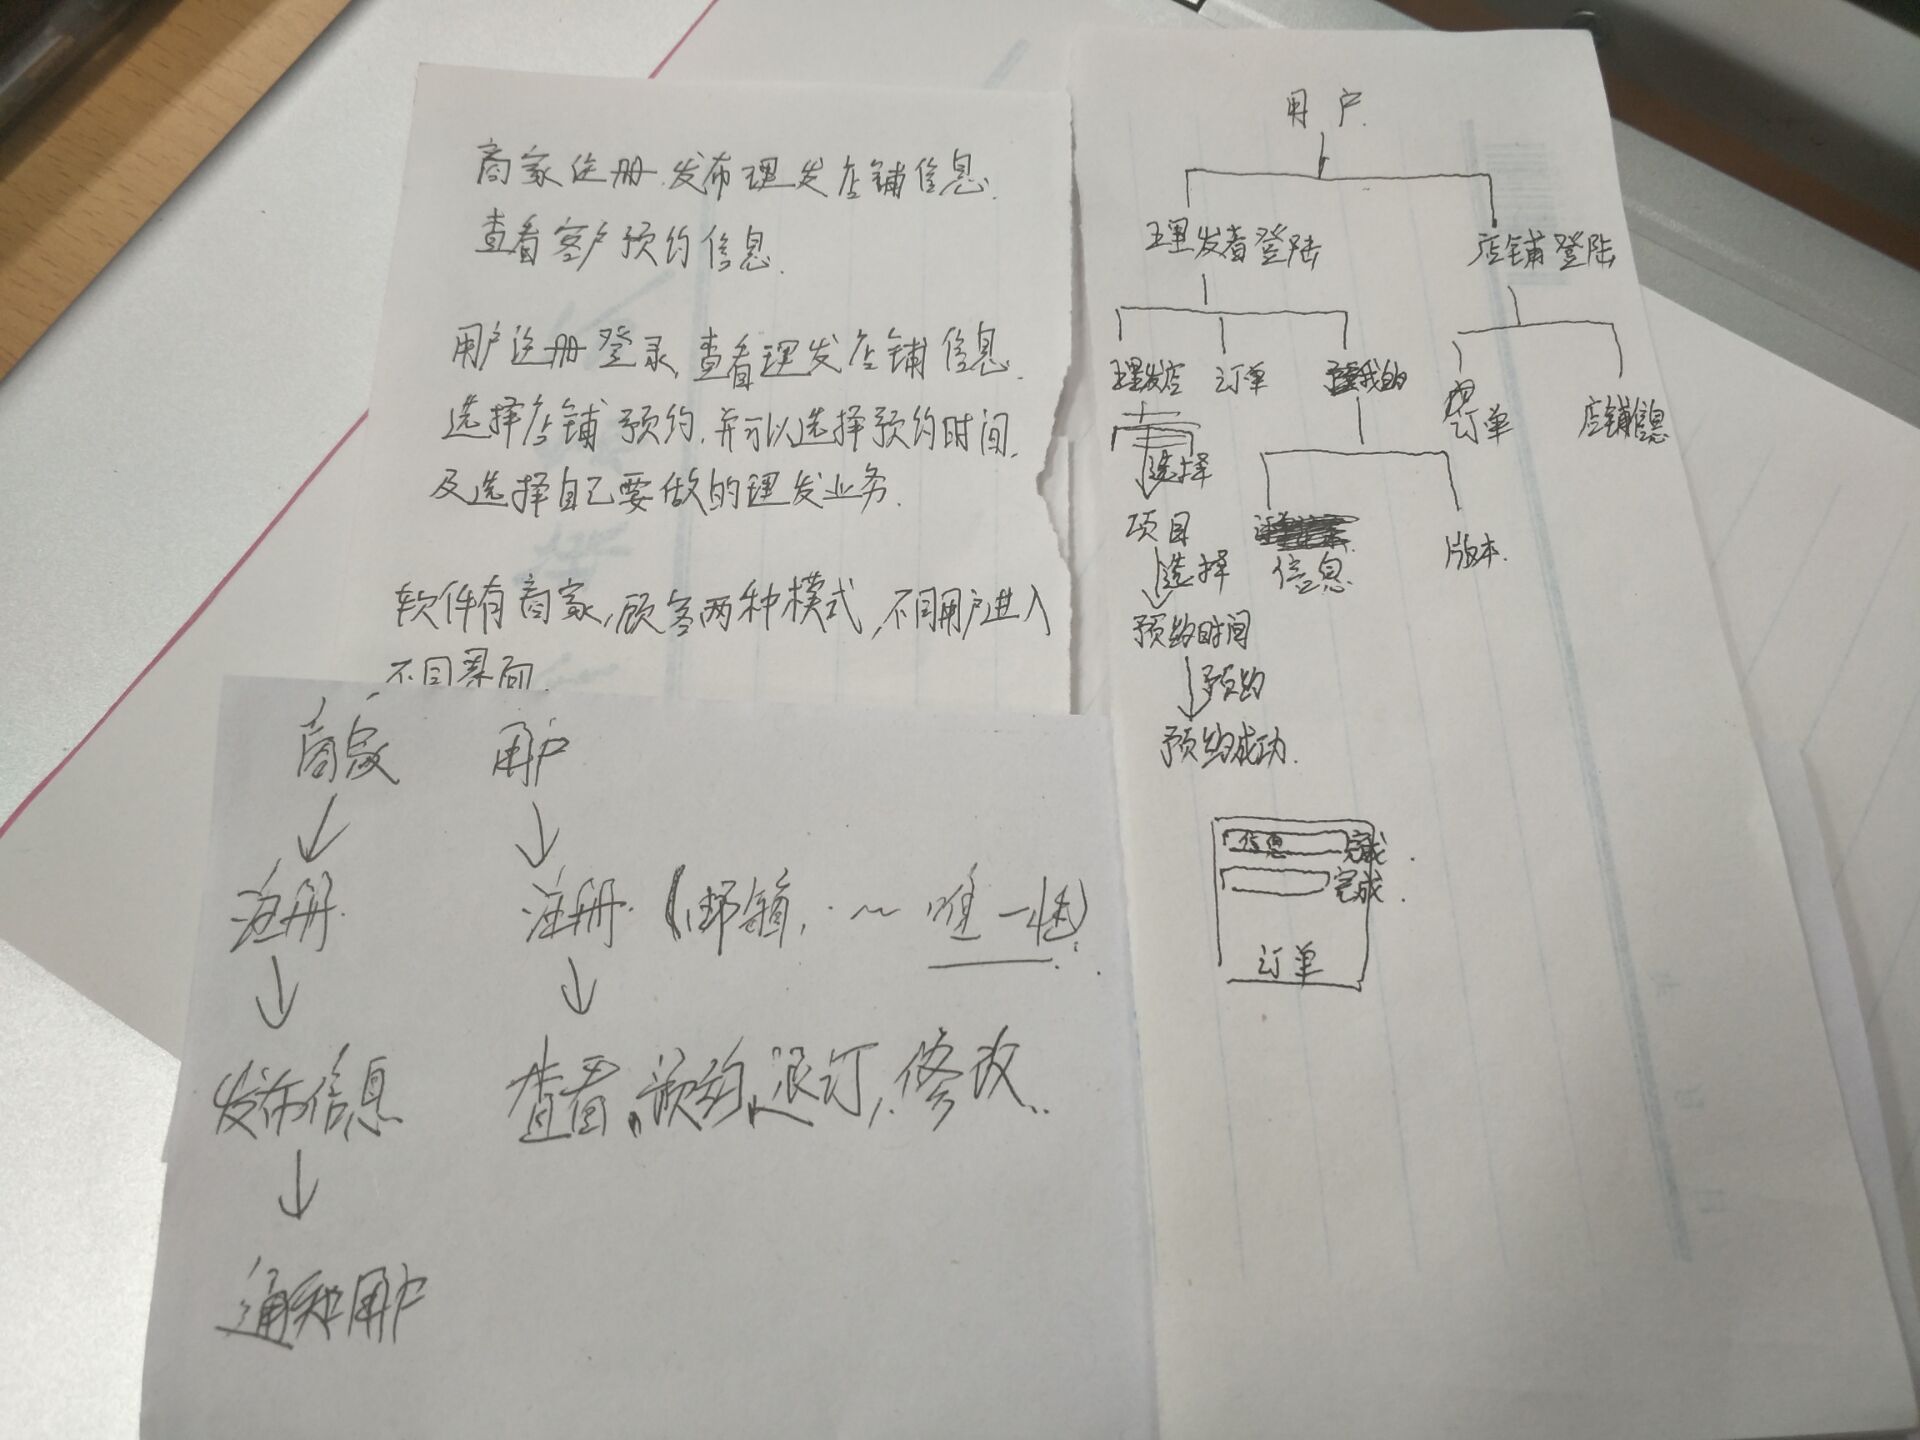 商家注册.发布理发店铺信息.
查看客户预约信息.
用户注册登录,查看理发店铺信息.
选择店铺预约,并可以选择预约时间.
及选择自己要做的理发业务.
软件有商家,顾客两种模式,不同用户进入
不同界面.
商家 用户
注册. 注册.(邮箱,.~唯一性)
发布信息 查看,预约,退订,修改..
通知用户
用户
理发者登陆 店铺登陆
理发店 订单 我的 订单 店铺信息
选择
项目 信息 版本
选择
预约时间
预约
预约成功.
信息 完成.
完成.
订单